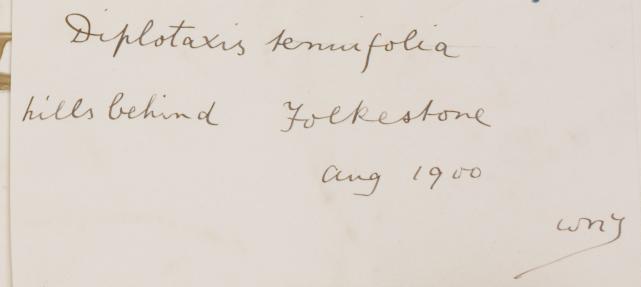 Diplotaxis tenuifolia
hills behind Folkestone
Aug 1900